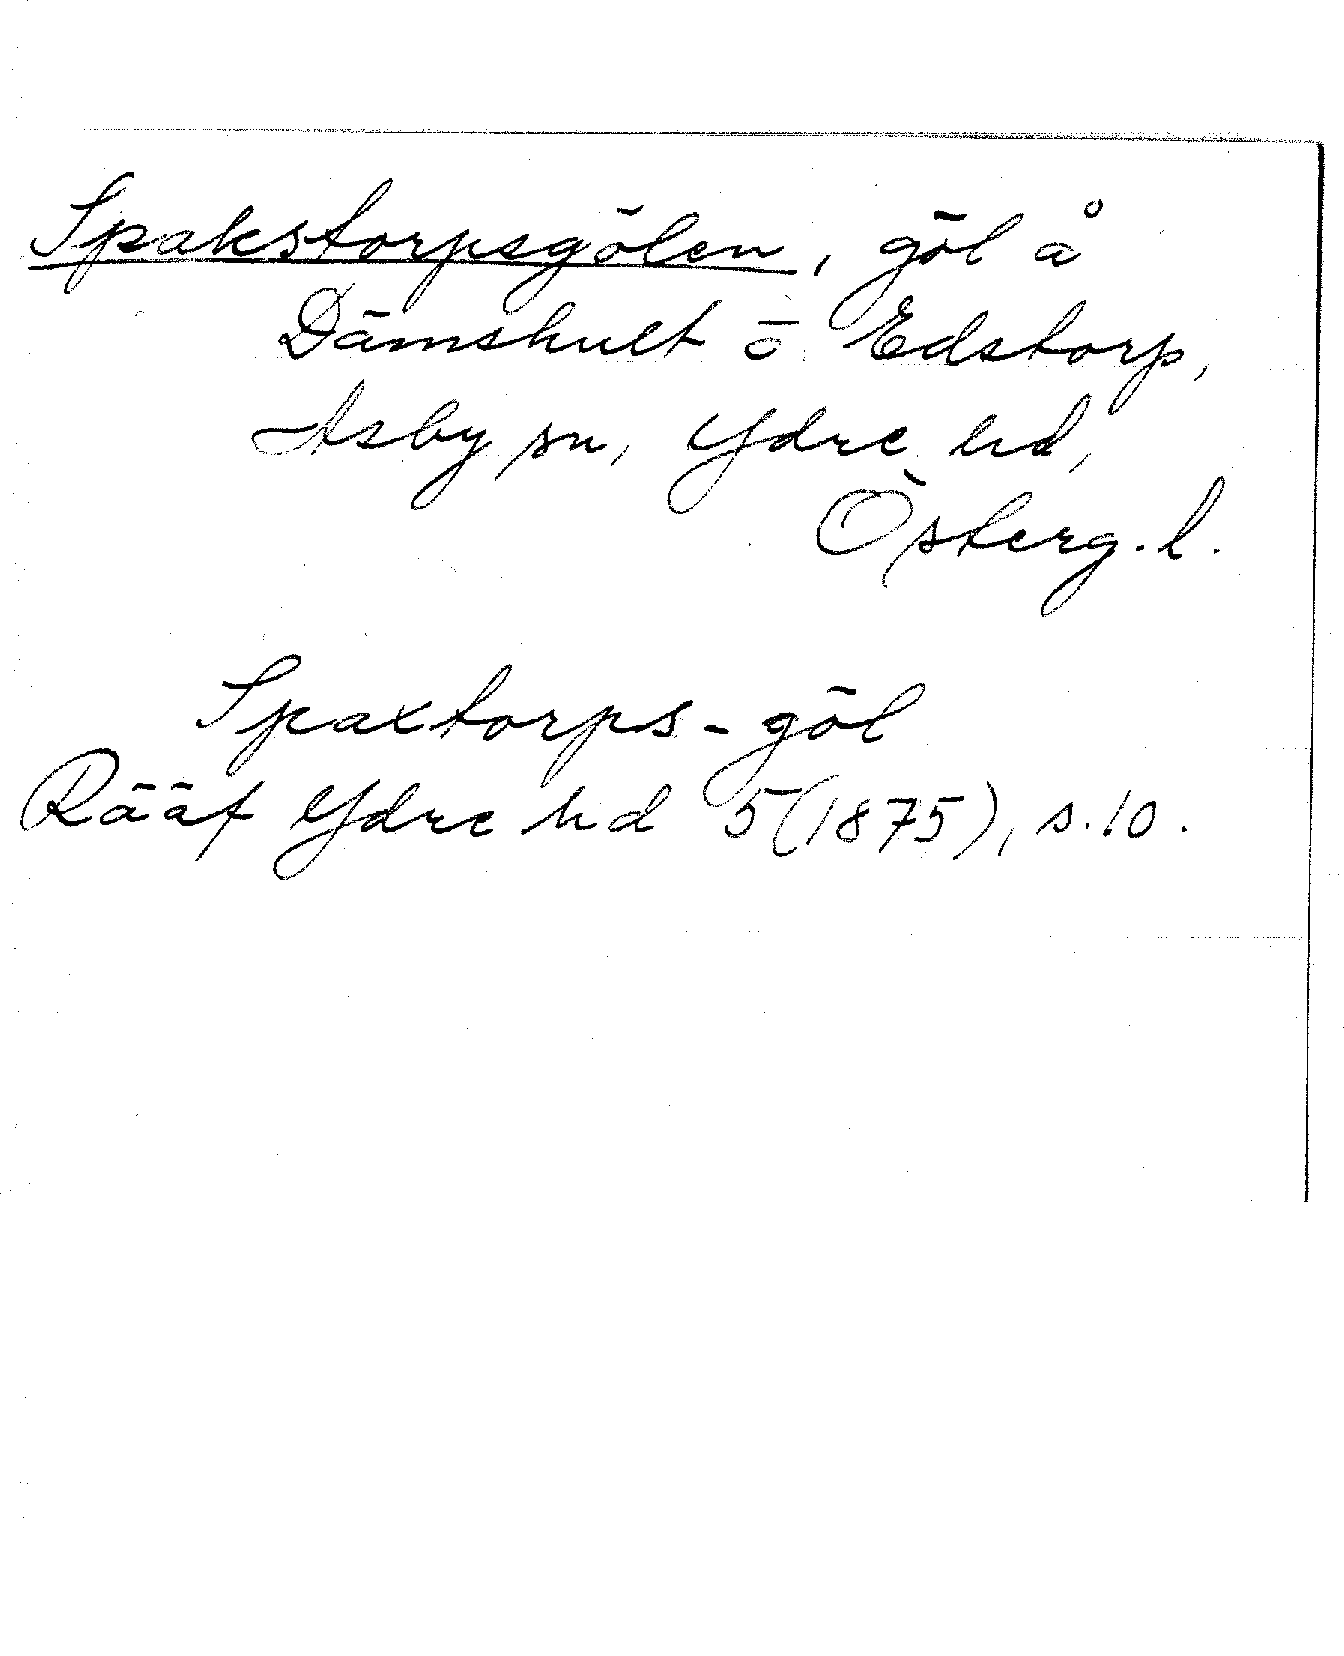 Spakstorpsgölen, göl å
Dämshult o Edstorp,
Asby sn, Ydre hd,
Österg.l.
Spaxtorps-göl
Rääf Ydre hd 5(1875), s.10.